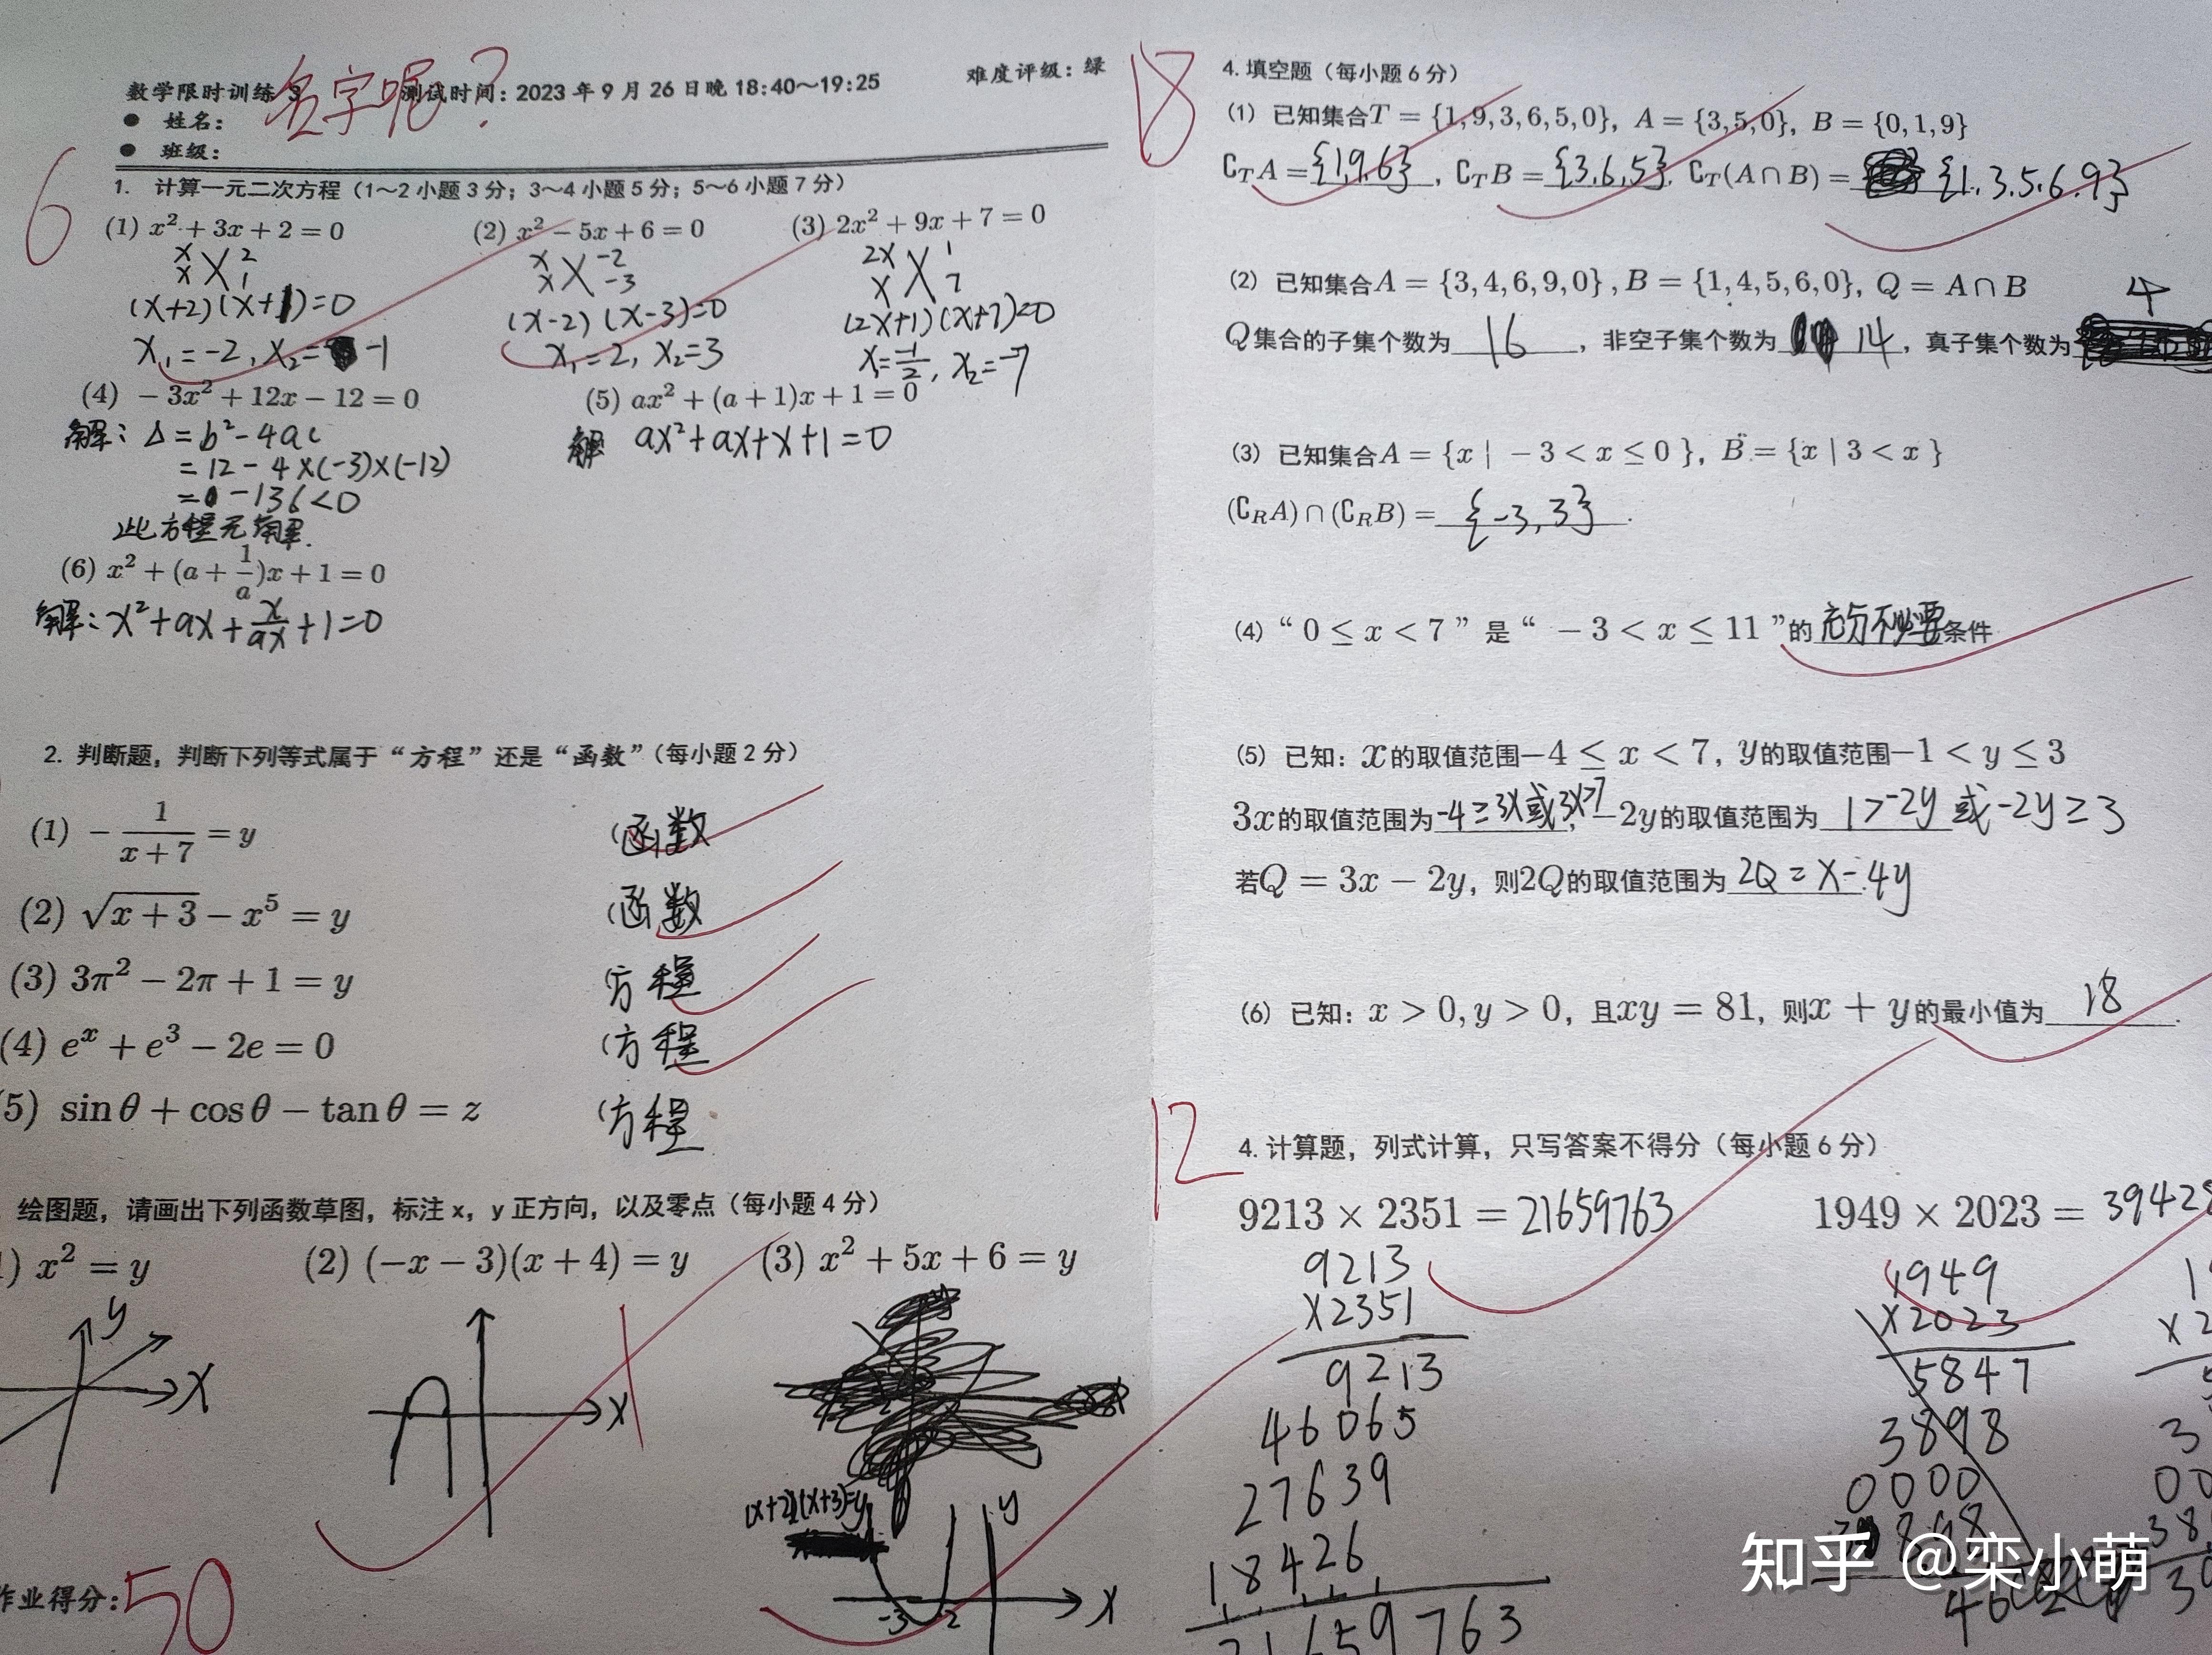 数学限时训练 3 测试时间：2023 年 9 月 26 日晚 18:40～19:25 难度评级：绿
名字呢？
● 姓名：
● 班级：
6
1. 计算一元二次方程（1～2 小题 3 分；3～4 小题 5 分；5～6 小题 7 分）
(1) x² + 3x + 2 = 0 (2) x² − 5x + 6 = 0 (3) 2x² + 9x + 7 = 0
x 2 x −2 2x 1
x 1 x −3 x 7
(x+2)(x+1)=0 (x-2)(x-3)=0 (2x+1)(x+7)=0
x₁=-2, x₂= -1 x₁=2, x₂=3 x₁=-1/2, x₂=-7
(4) − 3x² + 12x − 12 = 0 (5) ax² + (a + 1)x + 1 = 0
解：Δ=b²-4ac 解 ax²+ax+x+1=0
=12-4×(-3)×(-12)
= -136<0
此方程无解.
(6) x² + (a + 1/a)x + 1 = 0
解：x²+ax+x/ax+1=0
2. 判断题，判断下列等式属于“方程”还是“函数”（每小题 2 分）
(1) − 1/(x + 7) = y （函数
(2) √(x + 3) − x⁵ = y （函数
(3) 3π² − 2π + 1 = y （方程
(4) eˣ + e³ − 2e = 0 （方程
5) sin θ + cos θ − tan θ = z （方程
绘图题，请画出下列函数草图，标注 x，y 正方向，以及零点（每小题 4 分）
) x² = y (2) (−x − 3)(x + 4) = y (3) x² + 5x + 6 = y
y
x x
(x+2)(x+3)=y y
-3 -2 x
作业得分：50
18
4. 填空题（每小题 6 分）
(1) 已知集合T = {1, 9, 3, 6, 5, 0}, A = {3, 5, 0}, B = {0, 1, 9}
∁_T A = {1,9,6}, ∁_T B = {3,6,5}, ∁_T(A ∩ B) = {1.3.5.6.9}
(2) 已知集合A = {3, 4, 6, 9, 0}, B = {1, 4, 5, 6, 0}, Q = A ∩ B
4
Q集合的子集个数为 16，非空子集个数为 14，真子集个数为
(3) 已知集合A = {x | − 3 < x ≤ 0 }, B = {x | 3 < x }
(∁_R A) ∩ (∁_R B) = {-3,3}.
(4) “ 0 ≤ x < 7 ” 是 “ − 3 < x ≤ 11 ”的充分不必要条件
(5) 已知：x的取值范围−4 ≤ x < 7，y的取值范围−1 < y ≤ 3
3x的取值范围为-4≥3x或3x>7，−2y的取值范围为 1>-2y或-2y≥3
若Q = 3x − 2y，则2Q的取值范围为2Q=x-4y
(6) 已知：x > 0, y > 0，且xy = 81，则x + y的最小值为 18.
12
4. 计算题，列式计算，只写答案不得分（每小题 6 分）
9213 × 2351 = 21659763 1949 × 2023 = 39428
9213 1949 1
×2351 ×2023 ×2
9213 5847 5
46065 3898 3
27639 0000 00
18426 3898 38
21659763 46 3
知乎 @栾小萌